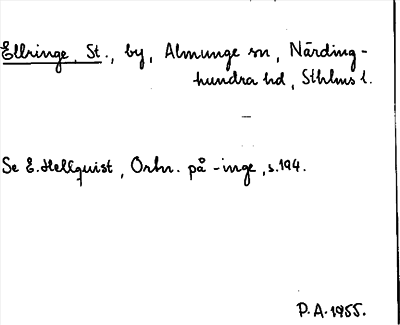 Ellringe, St., by, Almunge sn, Närding-
hundra hd, Sthlms l.
—
Se E. Hellquist, Ortn. på -inge, s. 194.
P.A. 1955.